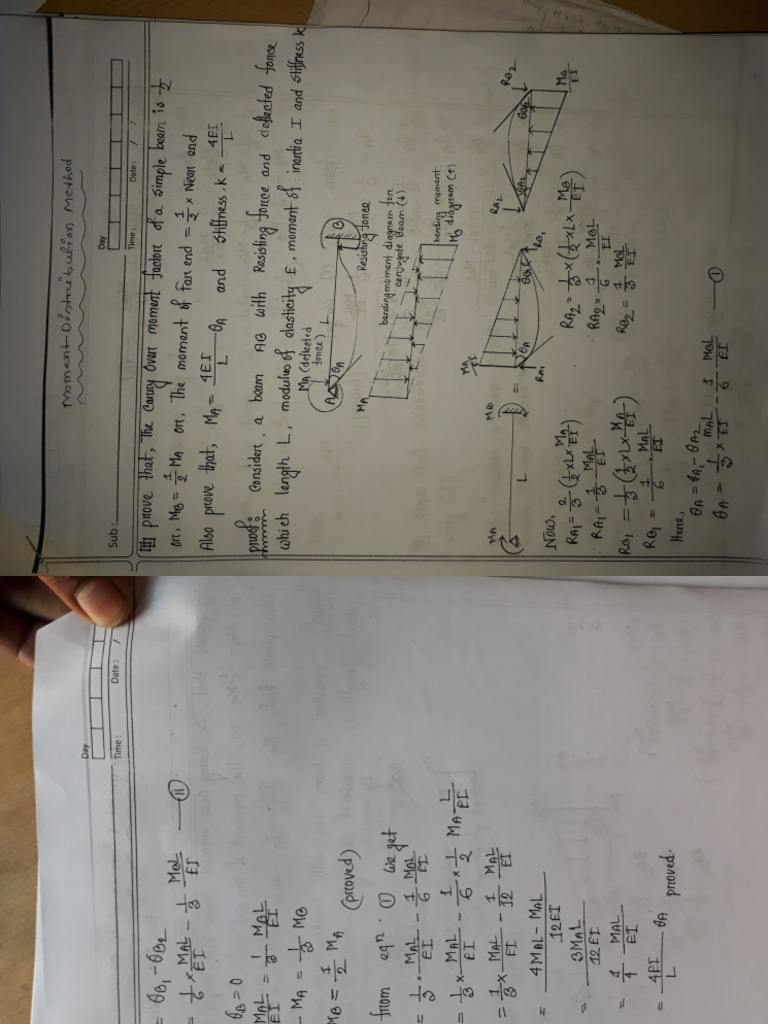 Moment Distribution Method
Day
Sub:
Time: Date: / /
prove that, The Carry Over moment factore of a simple beam is 1/2
or, MB = 1/2 MA or, The moment of Far end = 1/2 × Near end
Also prove that, MA = 4EI/L θA and stiffness. k = 4EI/L
proof: Consider, a beam AB with Resisting force and deflected force
which length L, modulus of elasticity E, moment of inertia I and stiffness k
MA (deflected force)
A θA L B
Resisting force
bending moment diagram for conjugate beam (+)
MA
bending moment diagram (+)
MB
MA L MB =
MA/EI θA θB1 RA1 RB1
RA2 θA2 θB2 RB2 MB/EI
Now,
RA1 = 2/3 (1/2 × L × MA/EI)
∴ RA1 = 1/3 · MAL/EI
RB1 = 1/3 (1/2 × L × MA/EI)
RB1 = 1/6 · MAL/EI
RA2 = 1/3 × (1/2 × L × MB/EI)
∴ RA2 = 1/6 · MBL/EI
RB2 = 1/3 MBL/EI
Here,
θA = θA1 - θA2
θA = 1/3 × MAL/EI - 1/6 · MBL/EI —— (I)
Day
Time: Date: /
= θB1 - θB2
= 1/6 × MAL/EI - 1/3 · MBL/EI —— (II)
θB = 0
MAL/EI = 1/3 · MBL/EI
MA = 1/3 MB
MB = 1/2 MA (proved)
from eqn. (I) we get
= 1/3 · MAL/EI - 1/6 MBL/EI
= 1/3 × MAL/EI - 1/6 × 1/2 MA L/EI
= 1/3 × MAL/EI - 1/12 MAL/EI
= 4MAL - MAL/12EI
= 3MAL/12EI
= 1/4 MAL/EI
= 4EI/L θA proved.